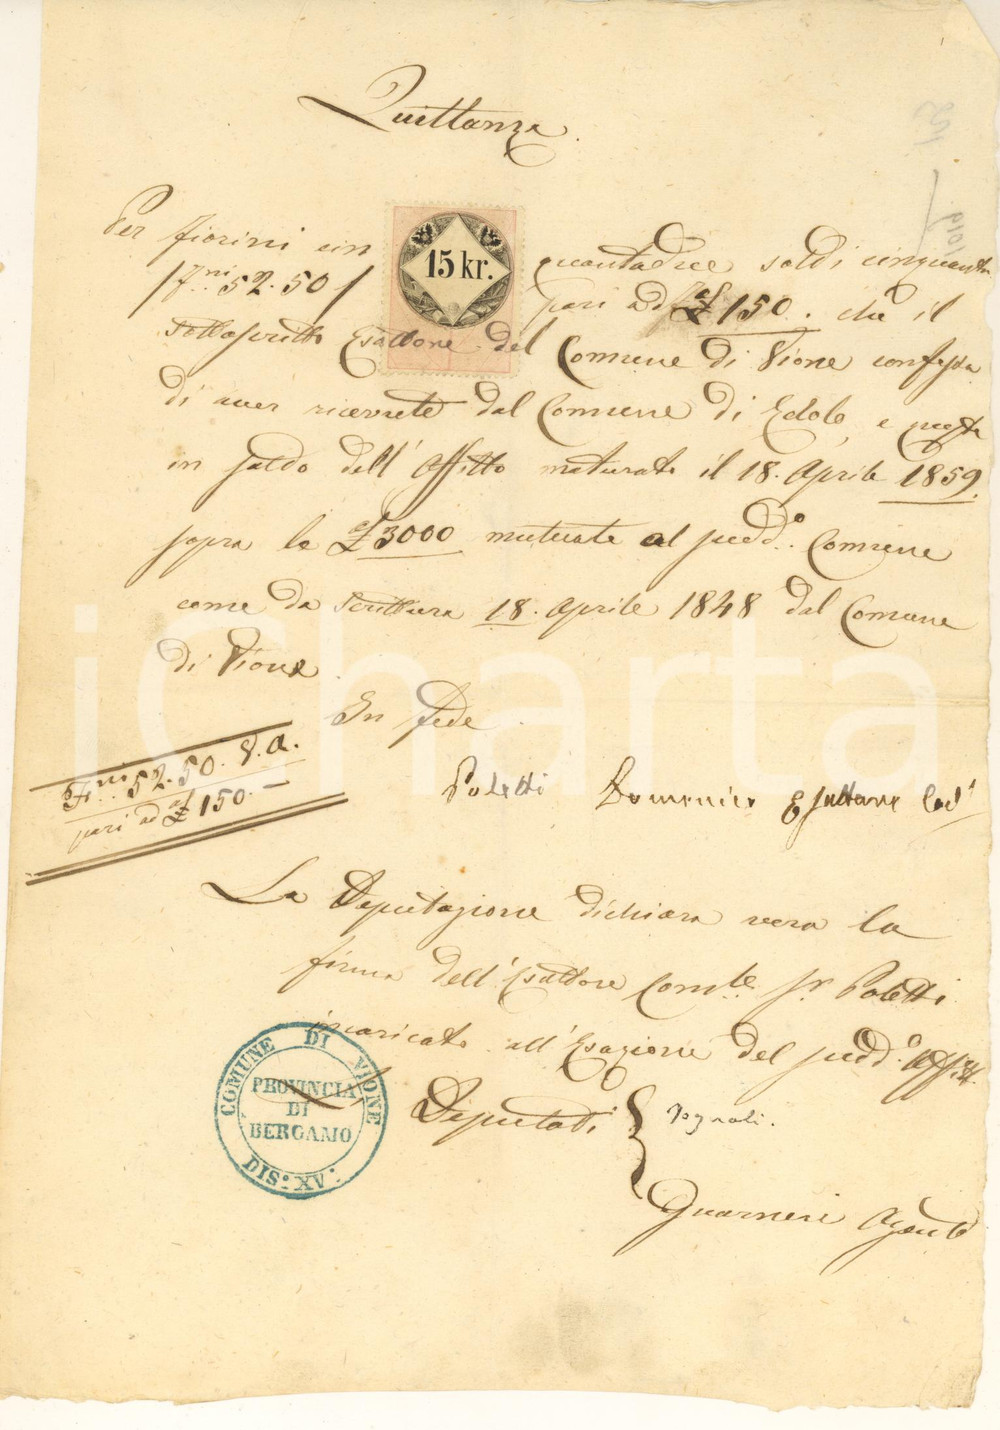 Quittanza.
Per fiorini cin quantadue soldi cinquanta
/f.ni 52.50/ pari ad £ 150. che il
sottoscritto Esattore del Comune di Vione confessa
di aver ricevute dal Comune di Edolo, e queste
in saldo dell'Affitto maturato il 18. Aprile 1859.
sopra le £ 3000 mutuate al sudd.o Comune
come da Scrittura 18. Aprile 1848 dal Comune
di Vione.
In fede.
F.ni 52.50. V.A.
pari ad £ 150.-
Poletti Domenico Esattore
La Deputazione dichiara vera la
firma dell'Esattore Com.le Sr. Poletti
incaricato all'Esazione del sudd.o Affitto.
Deputati { Tognali.
Guarneri Agente
15 kr.
COMUNE DI VIONE
PROVINCIA
DI
BERGAMO
DIS: XV:
iCharta